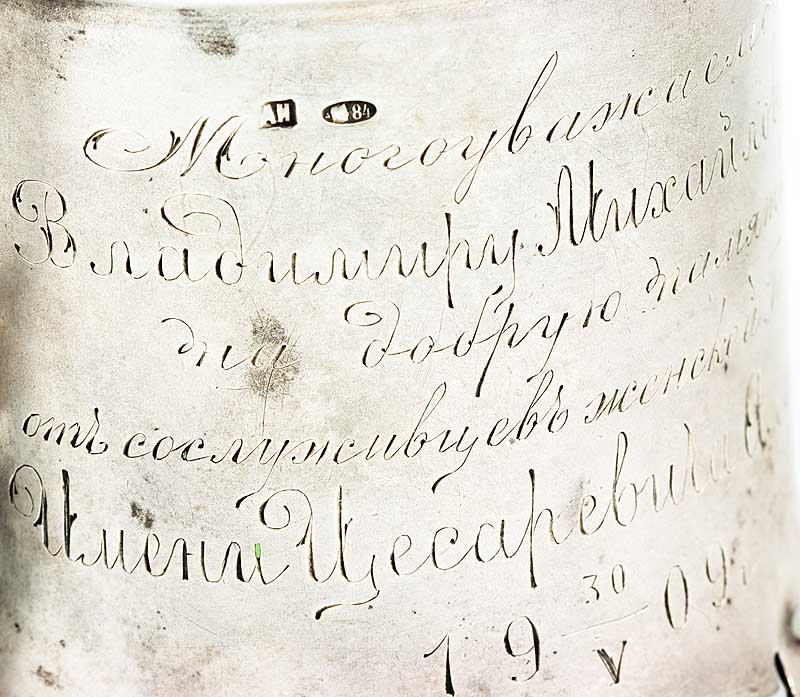 АИ 84
Многоуважаемо
Владимиру Михайло
на добрую памят
отъ сослуживцевъ женской
Имени Цесаревича А
19 30/V 09 г.